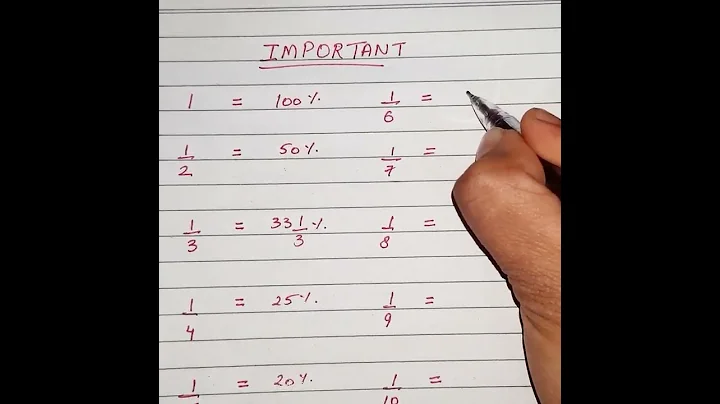 IMPORTANT
1 = 100% 1/6 =
1/2 = 50% 1/7 =
1/3 = 33 1/3 % 1/8 =
1/4 = 25% 1/9 =
1/ = 20% 1/10 =